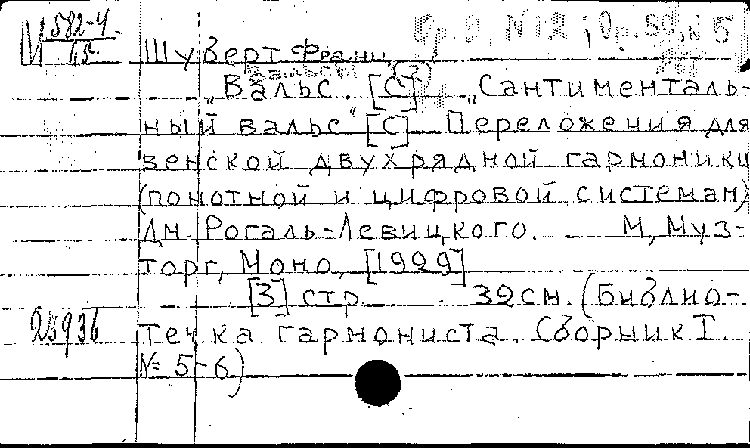 М 582-4 Ор. 9, N 12; Ор. 50, N 5
15
Шуберт Франц
Вальсы
„Вальс. [C] „Сантименталь-
ный вальс" [C] Переложения для
венской двухрядной гармоники
(по нотной и цифровой системам)
Дм. Рогаль-Левицкого. М, Муз-
торг, Моно, [1929]
[3] стр 32см. (Библио-
25936 течка гармониста. Сборник I.
№ 5-6)